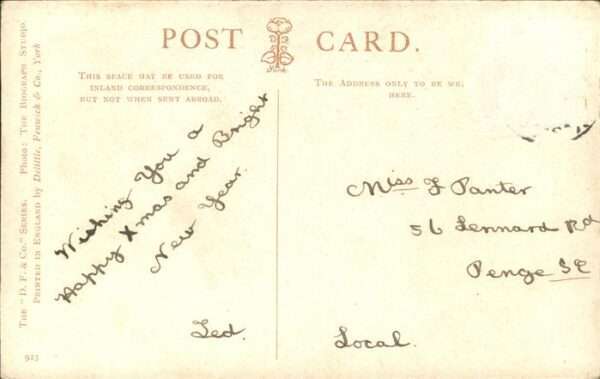 THE "D. F. & CO." SERIES. Photo: THE BIOGRAPH STUDIO.
PRINTED IN ENGLAND by Delittle, Fenwick & Co., York
POST CARD.
THIS SPACE MAY BE USED FOR
INLAND CORRESPONDENCE,
BUT NOT WHEN SENT ABROAD.
THE ADDRESS ONLY TO BE WR.
HERE.
Wishing You a
Happy Xmas and Bright
New Year.
Ted.
Miss F Panter
56 Lennard Rd
Penge SE
Local.
923